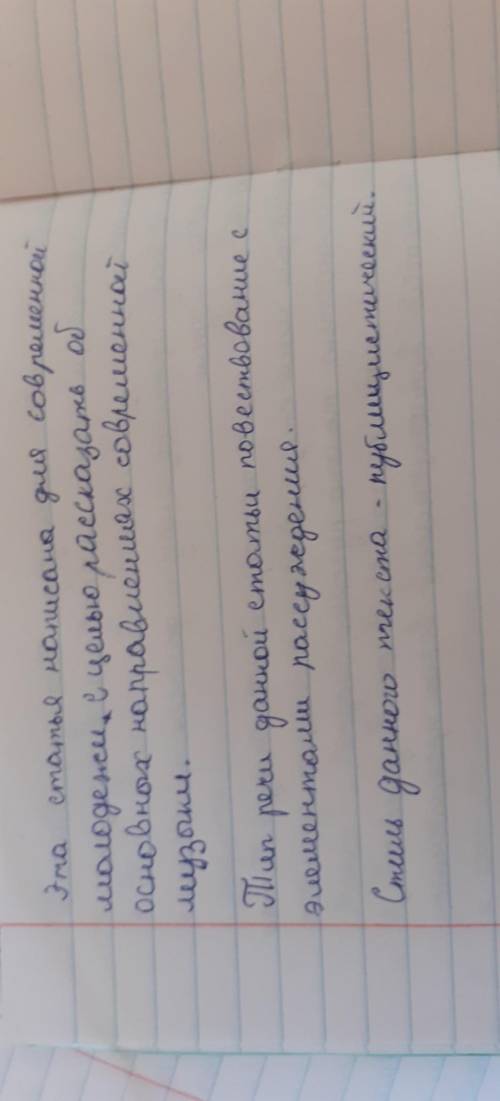 Эта статья написана для современной
молодежи, с целью рассказать об
основных направлениях современной
музыки.
Тип речи данной статьи повествование с
элементами рассуждения.
Стиль данного текста - публицистический.